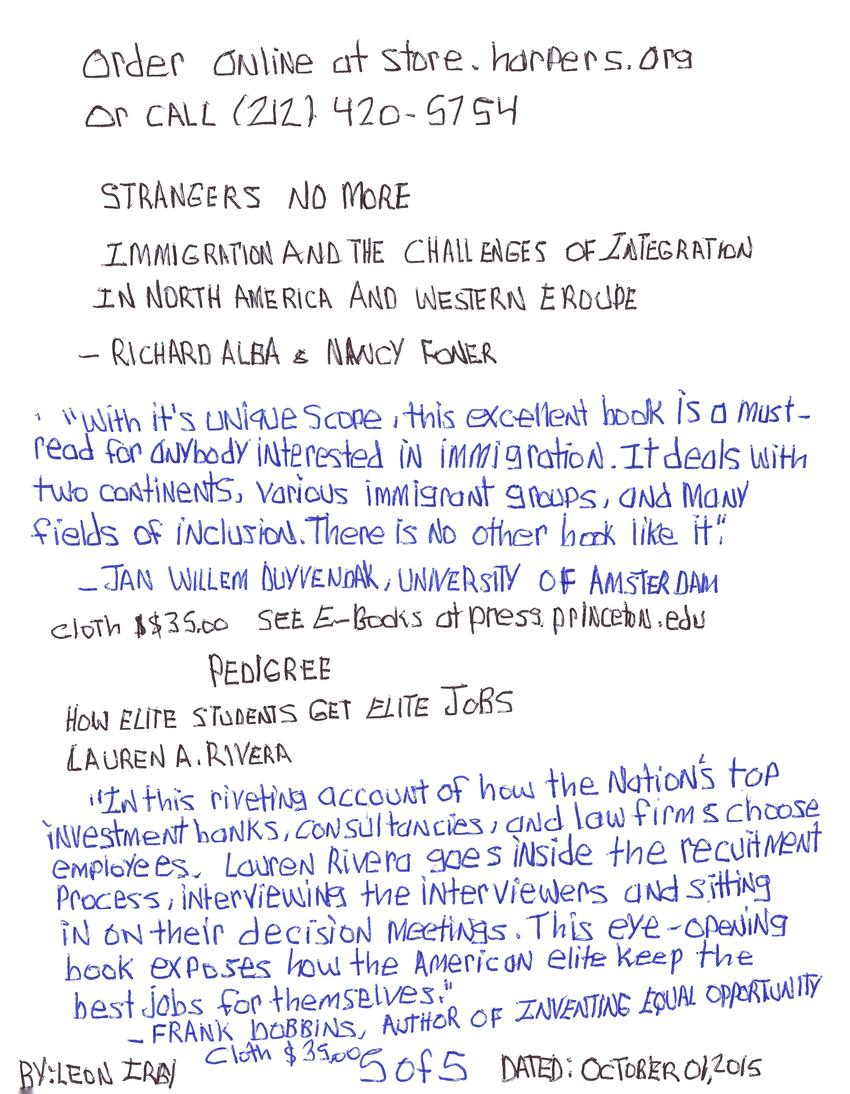 Order Online at store.harpers.org
Or CALL (212) 420-5754
STRANGERS NO MORE
IMMIGRATION AND THE CHALLENGES OF INTEGRATION
IN NORTH AMERICA AND WESTERN EROUPE
- RICHARD ALBA & NANCY FONER
"With it's unique Scope, this excellent book is a must-
read for anybody interested in immigration. It deals with
two continents, various immigrant groups, and many
fields of inclusion. There is no other book like it."
- JAN WILLEM DUYVENDAK, UNIVERSITY OF AMSTERDAM
Cloth $$35.00 SEE E-Books at press.princeton.edu
PEDIGREE
HOW ELITE STUDENTS GET ELITE JOBS
LAUREN A. RIVERA
"In this riveting account of how the Nation's top
investment banks, consultancies, and law firms choose
employees. Lauren Rivera goes inside the recuitment
Process, interviewing the interviewers and sitting
in on their decision meetings. This eye-opening
book exposes how the American elite keep the
best jobs for themselves."
- FRANK DOBBINS, AUTHOR OF INVENTING EQUAL OPPORTUNITY
Cloth $35.00
BY: LEON IRBY 5 of 5 DATED: OCTOBER 01, 2015